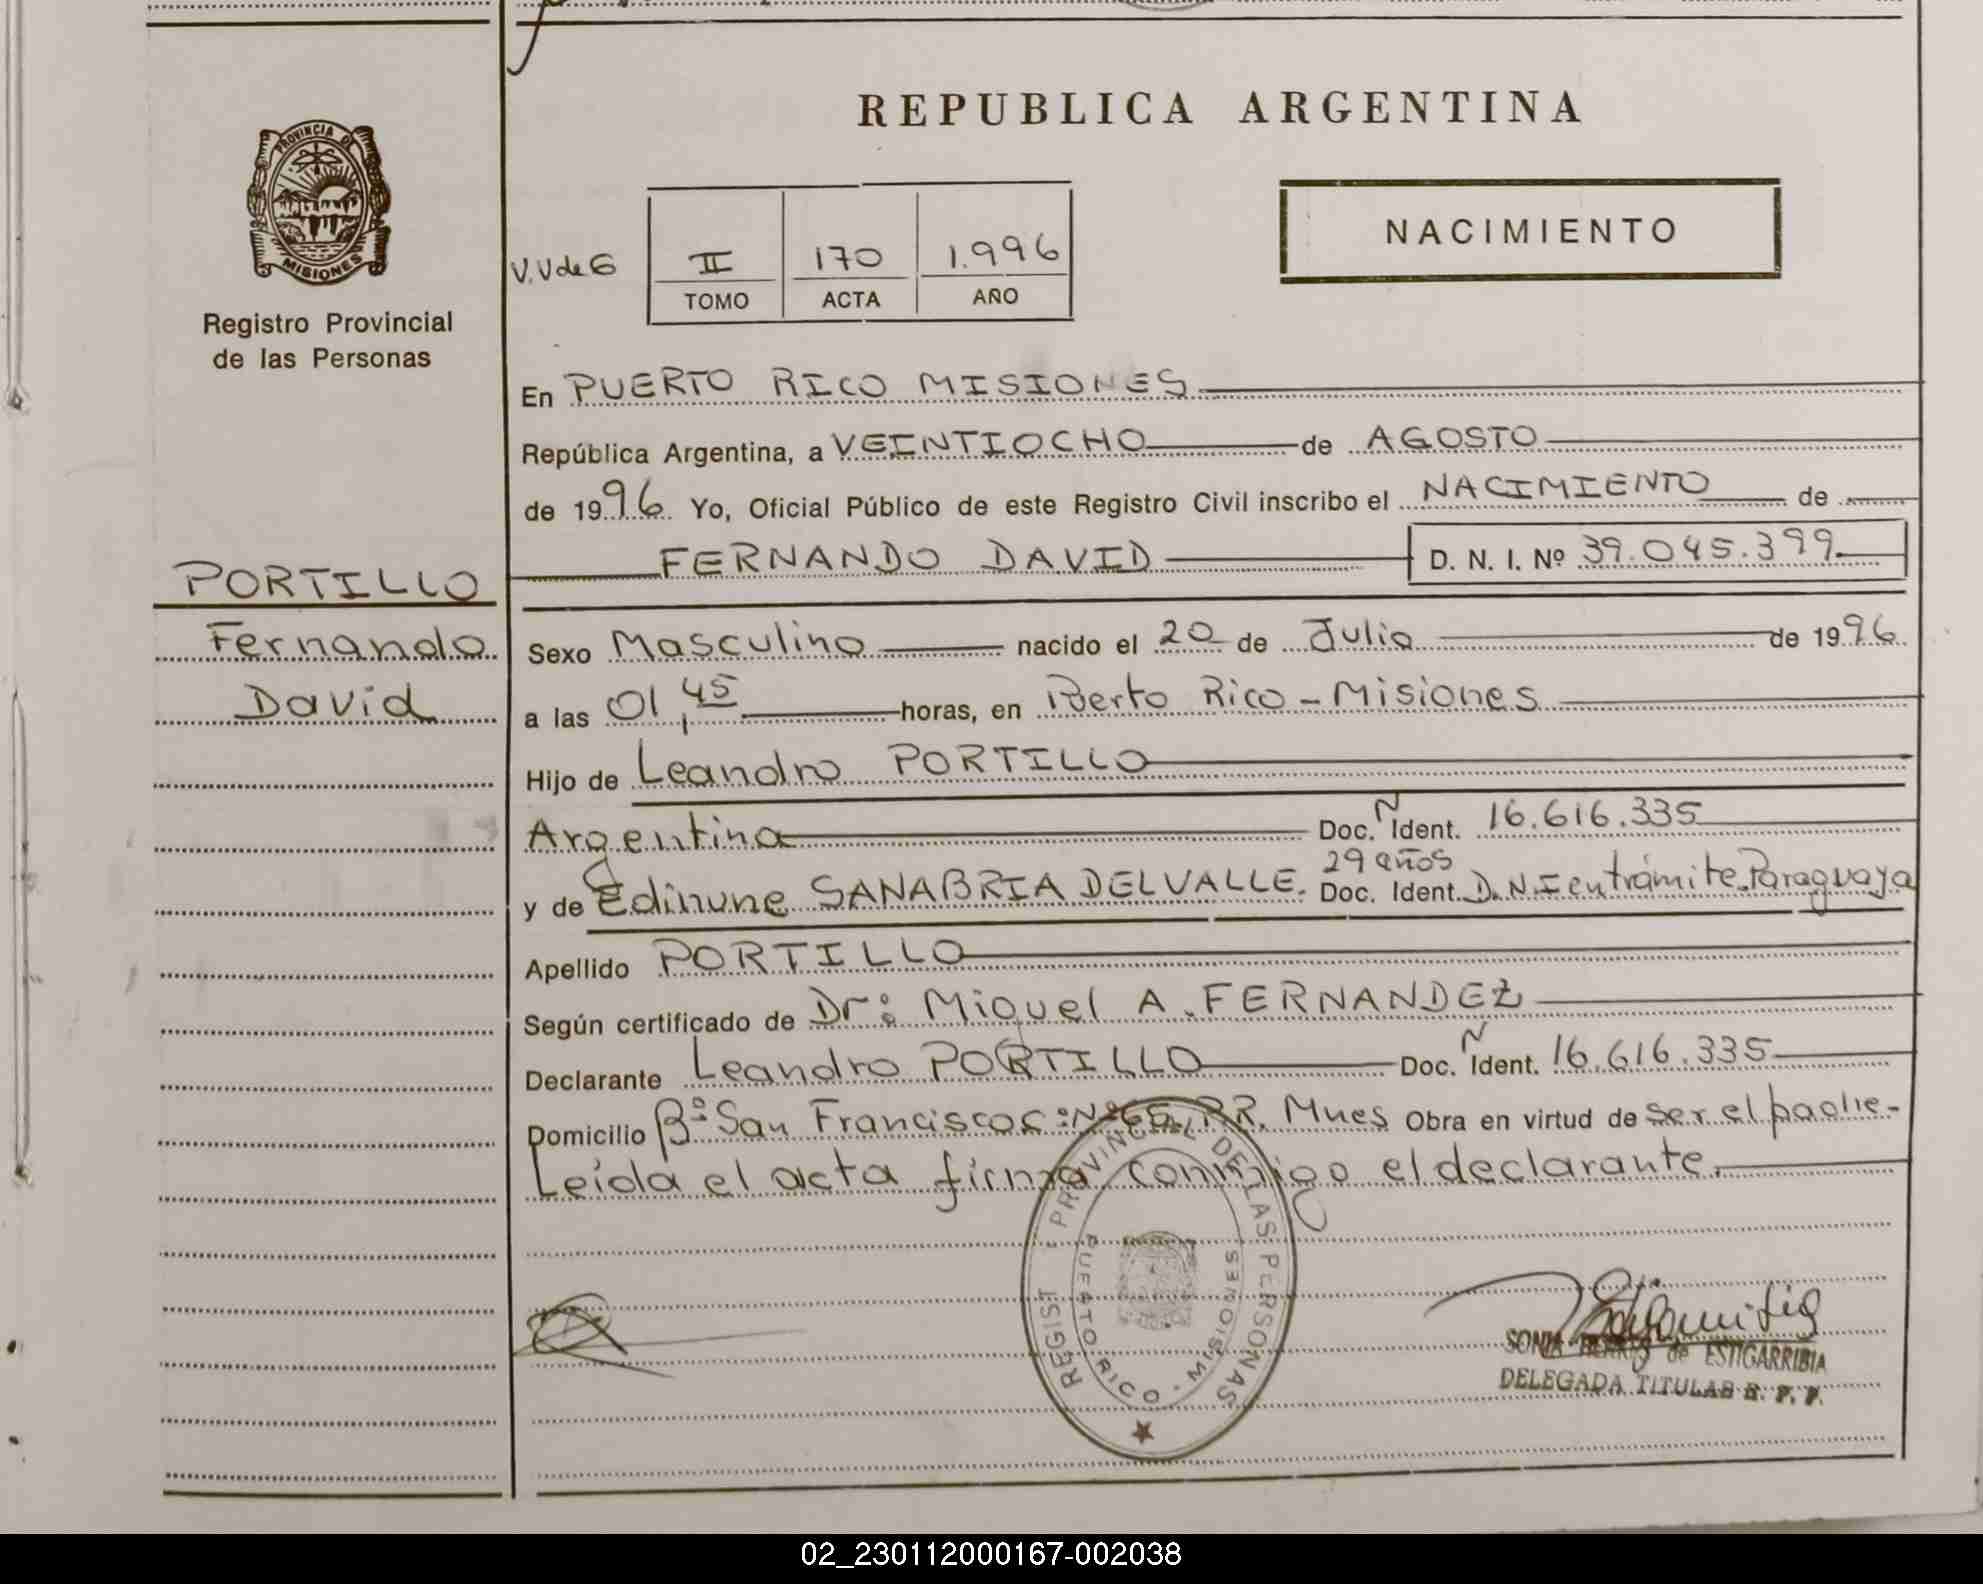 REPUBLICA ARGENTINA
PROVINCIA DE
MISIONES
Registro Provincial
de las Personas
V.V de G
II 170 1.996
TOMO ACTA AÑO
NACIMIENTO
En PUERTO RICO MISIONES
República Argentina, a VEINTIOCHO de AGOSTO
de 1996 Yo, Oficial Público de este Registro Civil inscribo el NACIMIENTO de
FERNANDO DAVID D. N. I. Nº 39.045.399
PORTILLO
Fernando
David
Sexo Masculino nacido el 20 de Julio de 1996
a las 01,45 horas, en Puerto Rico - Misiones
Hijo de Leandro PORTILLO
Argentina Doc. Ñ Ident. 16.616.335
29 años
y de Edinune SANABRIA DELVALLE. Doc. Ident. D.N.I en trámite. Paraguaya
Apellido PORTILLO
Según certificado de Dr: Miguel A. FERNANDEZ
Declarante Leandro PORTILLO Doc. Ñ Ident. 16.616.335
Domicilio Bº San Francisco C:Nº65, P.R. Mnes Obra en virtud de ser el padre-
Leída el acta firma conmigo el declarante.
REGIST PROVINCIAL DE LAS PERSONAS
PUERTO RICO - MISIONES
SONIA de ESTIGARRIBIA
DELEGADA TITULAR R. P. P.
02_230112000167-002038